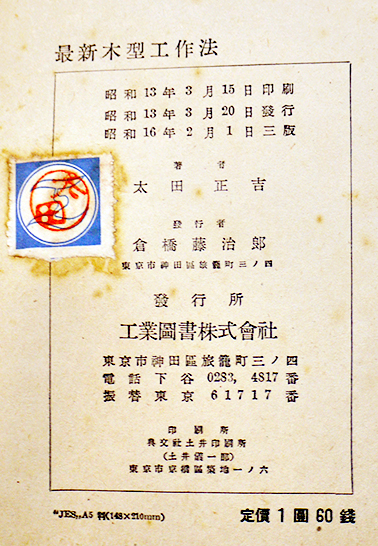 最新木型工作法
昭和13年3月15日印刷
昭和13年3月20日發行
昭和16年2月1日三版
著者
太田正吉
發行者
倉橋藤治郎
東京市神田區旅籠町三ノ四
發行所
工業圖書株式會社
東京市神田區旅籠町三ノ四
電話下谷 0283, 4817番
振替東京 61717番
印刷所
興交社土井印刷所
(土井儀一郎)
東京市京橋區築地一ノ六
太田
"JES„A5 判(148×210mm)
定價1圓60錢